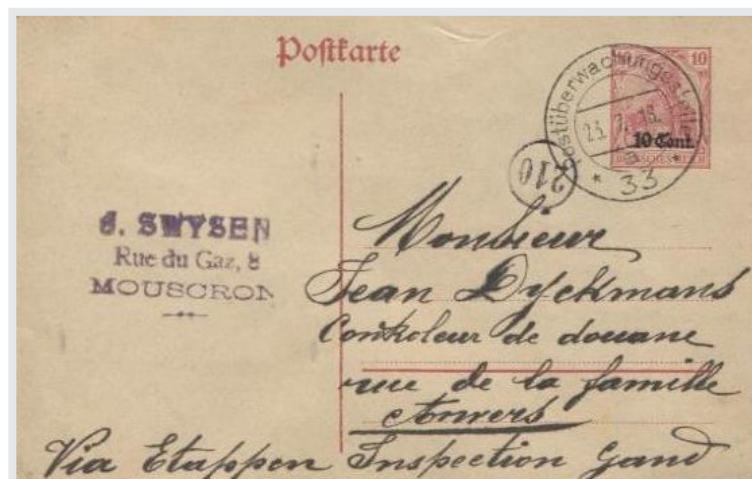 Postkarte
10
10 Cent.
DEUTSCHES REICH
Postüberwachungsstelle
23.
a
* 33 *
210
J. SWYSEN
Rue du Gaz, 8
MOUSCRON
Monsieur
Jean Dyckmans
Controleur de douane
rue de la famille
Anvers
Via Etappen Inspection Gand